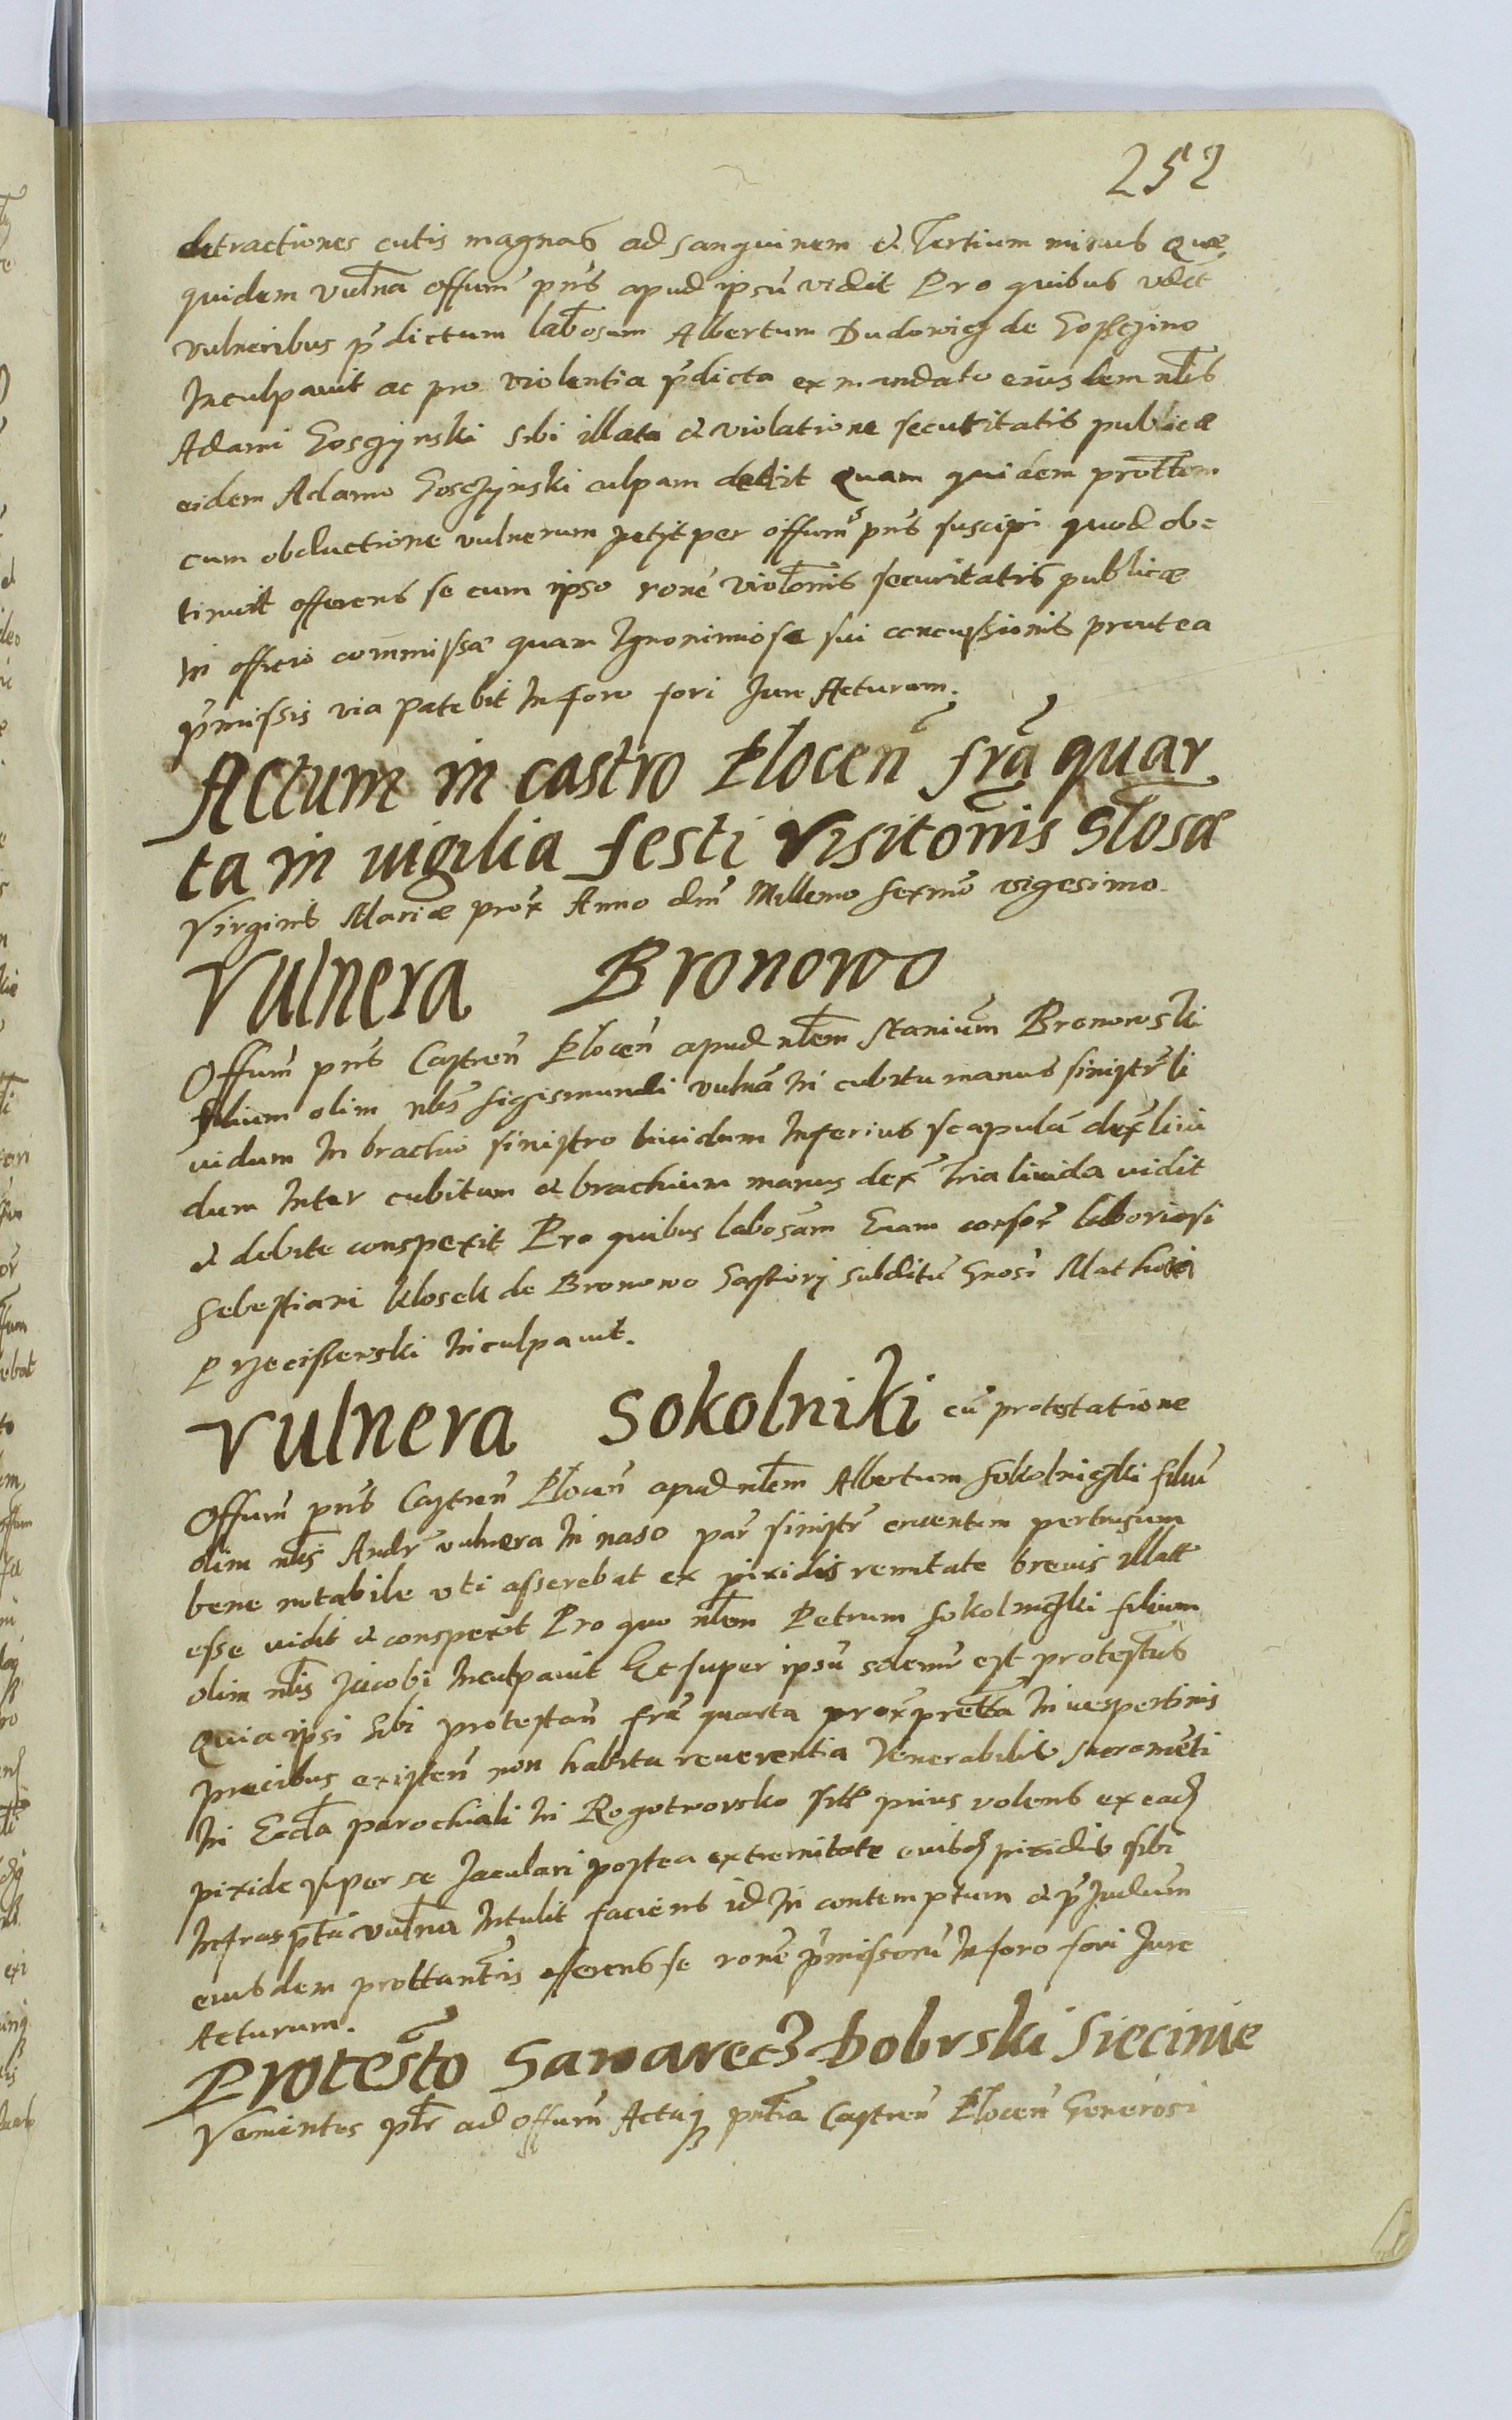 252
detractiones cutis magnas ad sanguinem et Tertium minus Quæ
quidem vulna Offium pns apud ipsu vidit Pro quibus vdct
vulneribus pdictum labosum Albertum Dudowicz de
Inculpauit ac pro violentia pdicta ex mandato eiusdem nlis
Adami sibi illata et violatione securitatis publicæ
eidem Adamo culpam dedit Quam quidem prottem
cum obductione vulnerum petyt per offium pns suscipi quod ob=
tinuit offerens se cum ipso rone violonis securitatis publicæ
in officio commissæ quam Ignominiose sui concussionis prout ea
pmissis via patebit In foro fori Jure Acturum.
Actum in castro Plocen fra quar
ta in uigilia festi Visitonis Glosæ
Virginis Mariæ prox Anno dni Millemo sexmo vigesimo
Vulnera Bronowo
Offium pns Castren Plocen apud nlem Stanium Bronowski
filium olim nlis Sigismundi vulna In cubitu manus sinistr li
uidum In brachio sinistro liuidum Inferius scapula dex liui
dum Inter cubitum et brachium manus dex Tria liuida vidit
et debite conspexit Pro quibus labosam Euam consor laboriosi
Sebestiani Klosek de Bronowo subditu Gnosi
Przeciszewski Inculpauit.
Vulnera Sokolniki cu protestatione
Offium pns Castren Plocen apud nlem Albertum Sokolniczki filiu
olim nlis Andr vulnera In naso par sinistr cruentum pertusum
bene notabile vti asserebat ex pixidis breuis illatt
esse vidit et conspexit Pro quo nlem Petrum Sokolniczki filium
olim nlis Jacobi Inculpauit Et super ipsu solenr est protestus
Quia ipsi sibi protestan fra quarta prox prætta In uespertinis
precibus existen non habita reuerentia Venerabilis sacrameti
In Eccla parochiali In Rogotworsko prius volens ex ead
pixide super se Jaculari postea extremitate eiusd pixidis sibi
Infrascpta vulna Intulit faciens id In contemptum et pJudium
eiusdem prottantis offerens se rone pmissoru In foro fori Jure
Acturum.
Protesto Dobrski Siecinie
Venientes pltr ad Offium Actaq pntia Castren Plocen Generosi